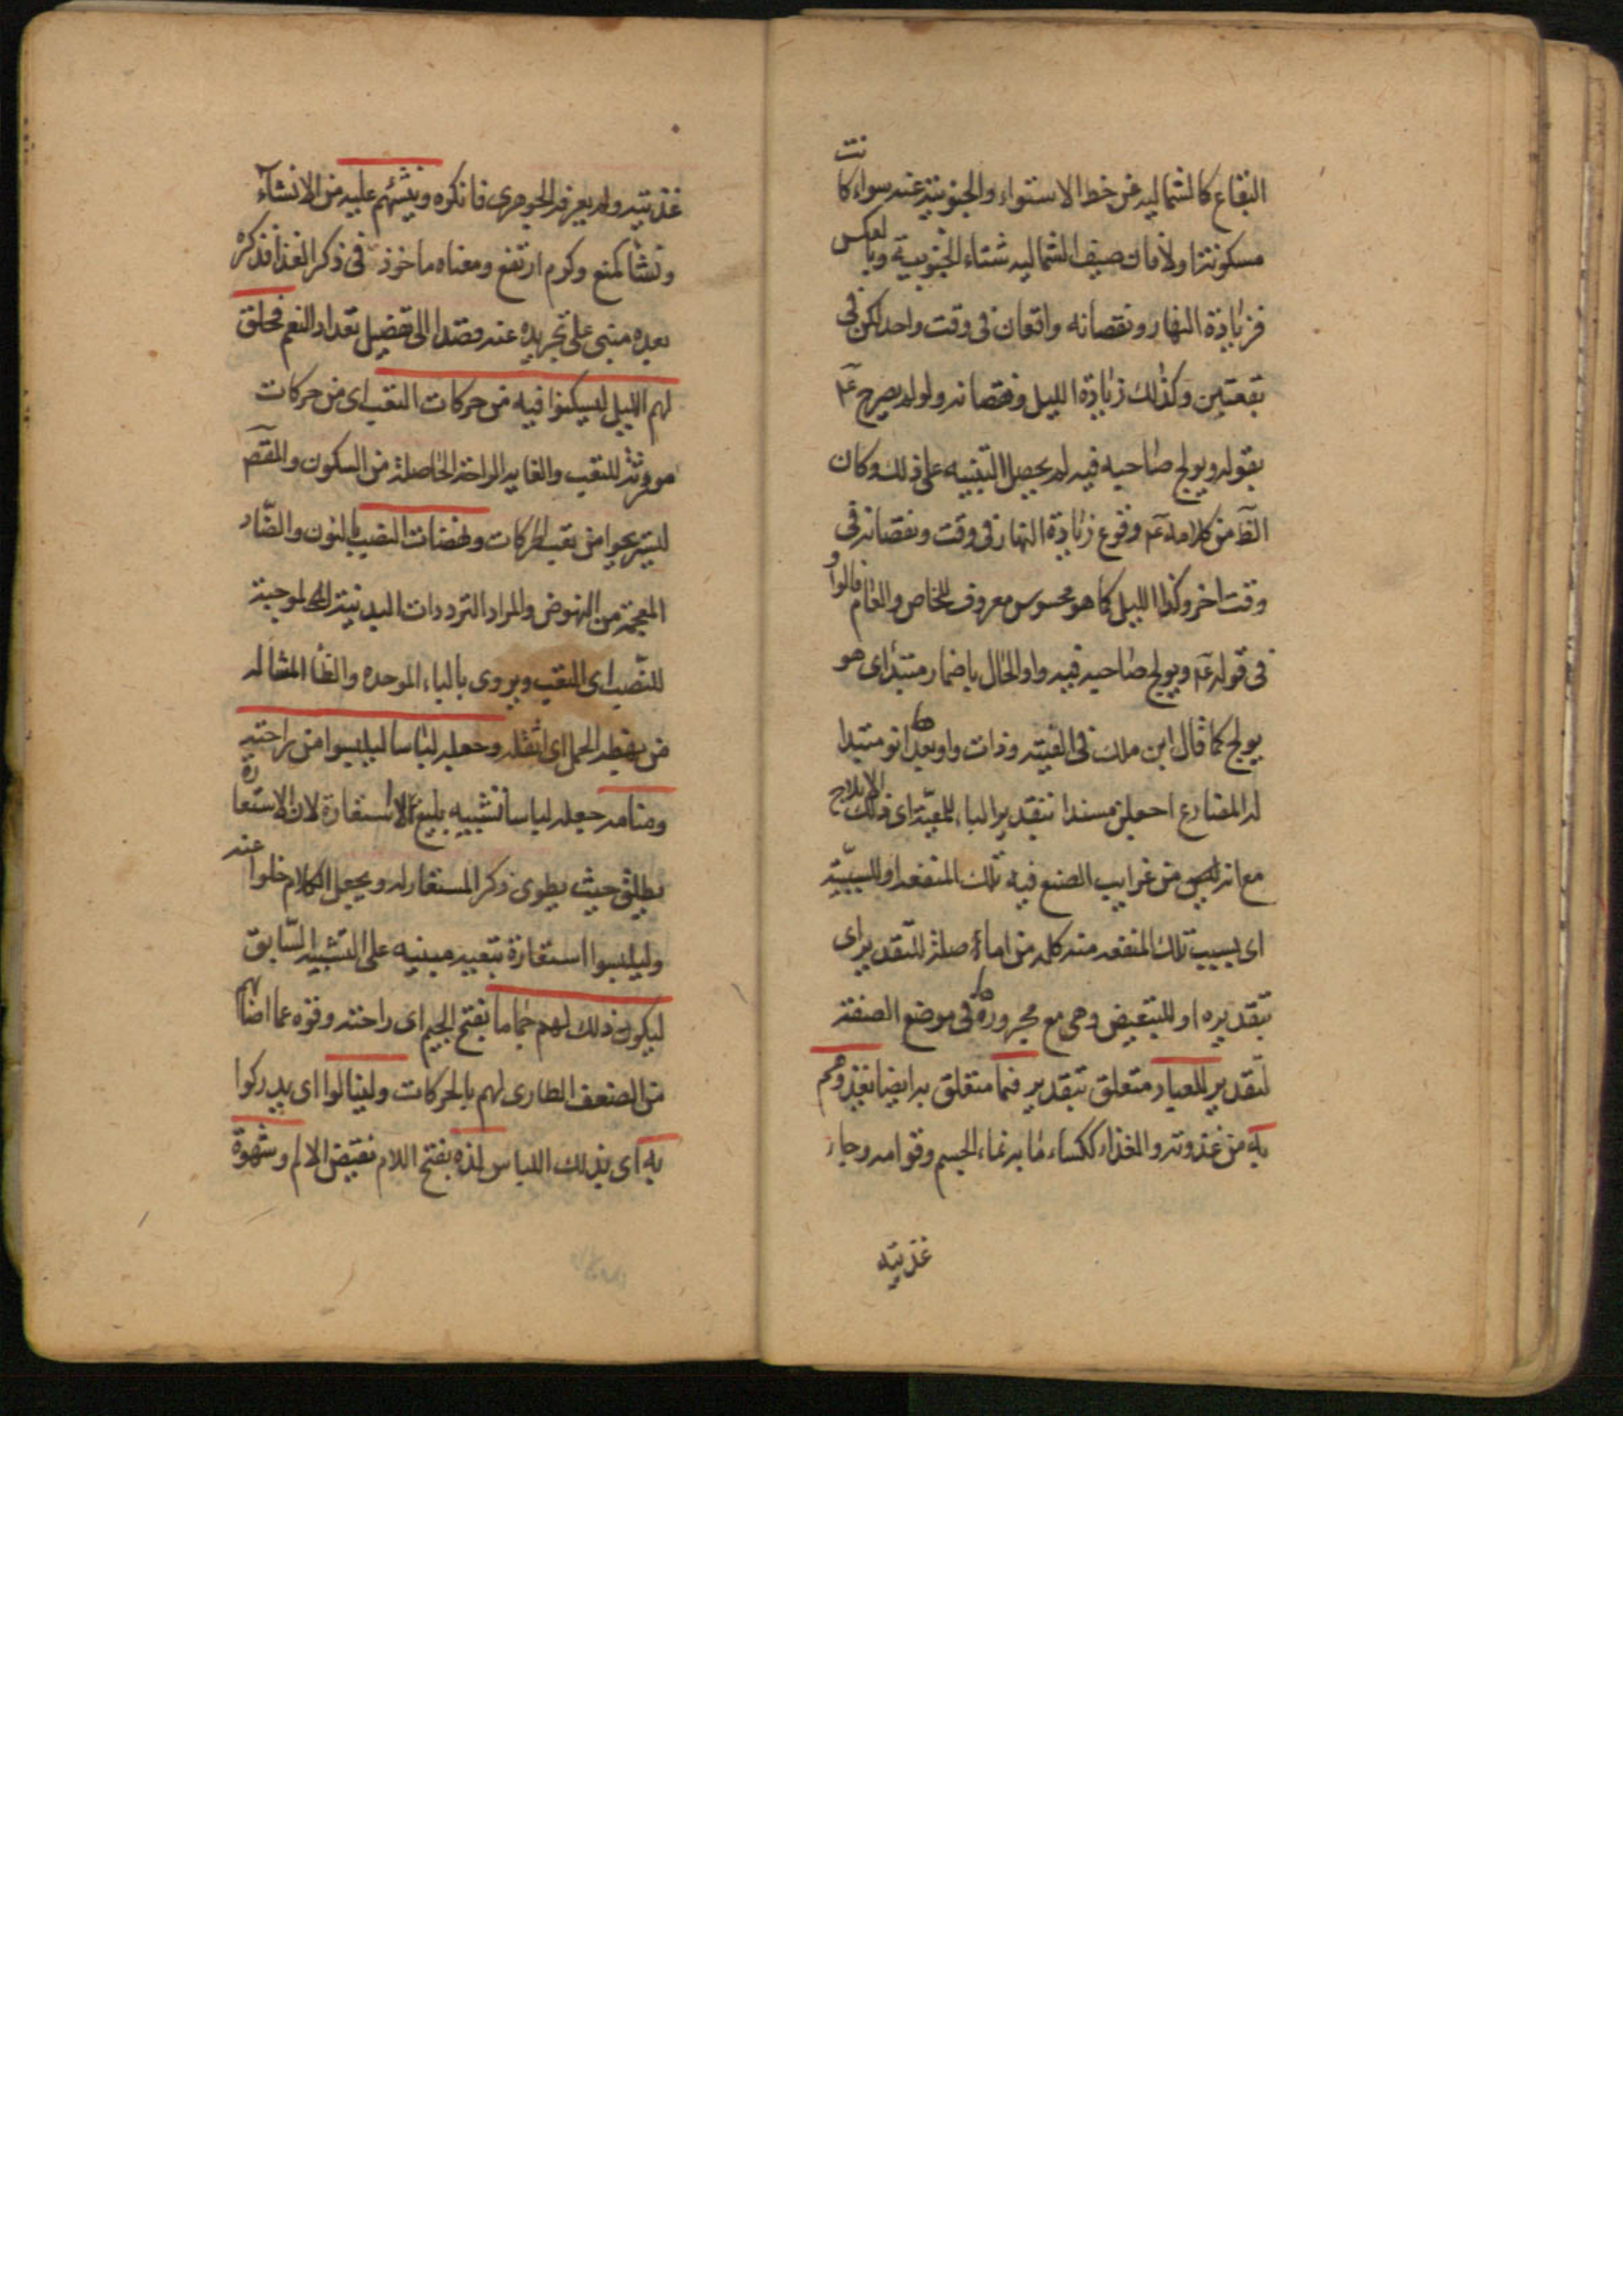 البقاع كالشماليه عن خط الاستواء والجنوبية عنه سواء كانت
مسكونة او لا فان صيف الشماليه شتاء الجنوبية وبالعكس
فزيادة النهار ونقصانه واقعان فى وقت واحد لكن فى
بقعتين وكذلك زيادة الليل ونقصانه ولو لم يصرح عم
بقوله ويولج صاحبه فيه لم يحصل التنبيه على ذلك وكان
الظ من كلامه عم وقوع زيادة النهار فى وقت ونقصانه فى
وقت اخر وكذا الليل كما هو محسوس معروف للخاص والعام قالوا و
فى قوله عم ويولج صاحبه فيه واو الحال باضمار مبتدأ اى هو
يولج كما قال ابن ملك فى الفيته وذات واو بعدها انو مبتدا
له المضارع اجعلن مسندا بتقدير الباء للمعيّة اى ذلك الايلاج
مع انه لهم من غرايب الصنع فيه تلك المنفعه او للسببيّة
اى بسبب تلك المنفعه منه كله من اما صلة للتقدير اى
بتقديره او للتبعيض وهى مع مجرورها فى موضع الصفة
لتقدير للعباد متعلق بتقدير فيما متعلق به ايضا يغذوهم
به من غذوته والغذاء ككساء ما به نماء الجسم وقوامه وجاء
غذيته
غذيته ولم يعرفه الجوهرى فانكره وينشئهم عليه من الانشاء
ونشأ كمنع وكرم ارتفع ومعناه ماخوذ فى ذكر الغذا فذكره
بعده مبنى على تجريده عنه قصدا الى تفضيل تعداد النعم فخلق
لهم الليل ليسكنوا فيه من حركات التعب اى من حركات
مورثة للتعب والغايه الراحة الحاصلة من السكون والمقص
ليستريحوا من تعب الحركات ونهضات النصب بالنون والضاد
المعجمة من النهوض والمراد الترددات البدنية الموجبة
للنّصب اى التعب ويروى بالباء الموحده والظا المشاله
من بهظه الحمل اى اثقله وجعله لباسا ليلبسوا من راحته
ومنامه جعله لباسا تشبيه بليغ لا استعارة لان الاستعارة
يطلق حيث يطوى ذكر المستعار له ويجعل الكلام خلوا عنه
وليلبسوا استعارة تبعيه مبنيه على التشبيه السّابق
ليكون ذلك لهم جماما بفتح الجيم اى راحته وقوه عما اضا لهم
من الضعف الطارى لهم بالحركات ولينالوا اى يدركوا
به اى بذلك اللباس لذه بفتح اللام نقيض الالم وشهوة